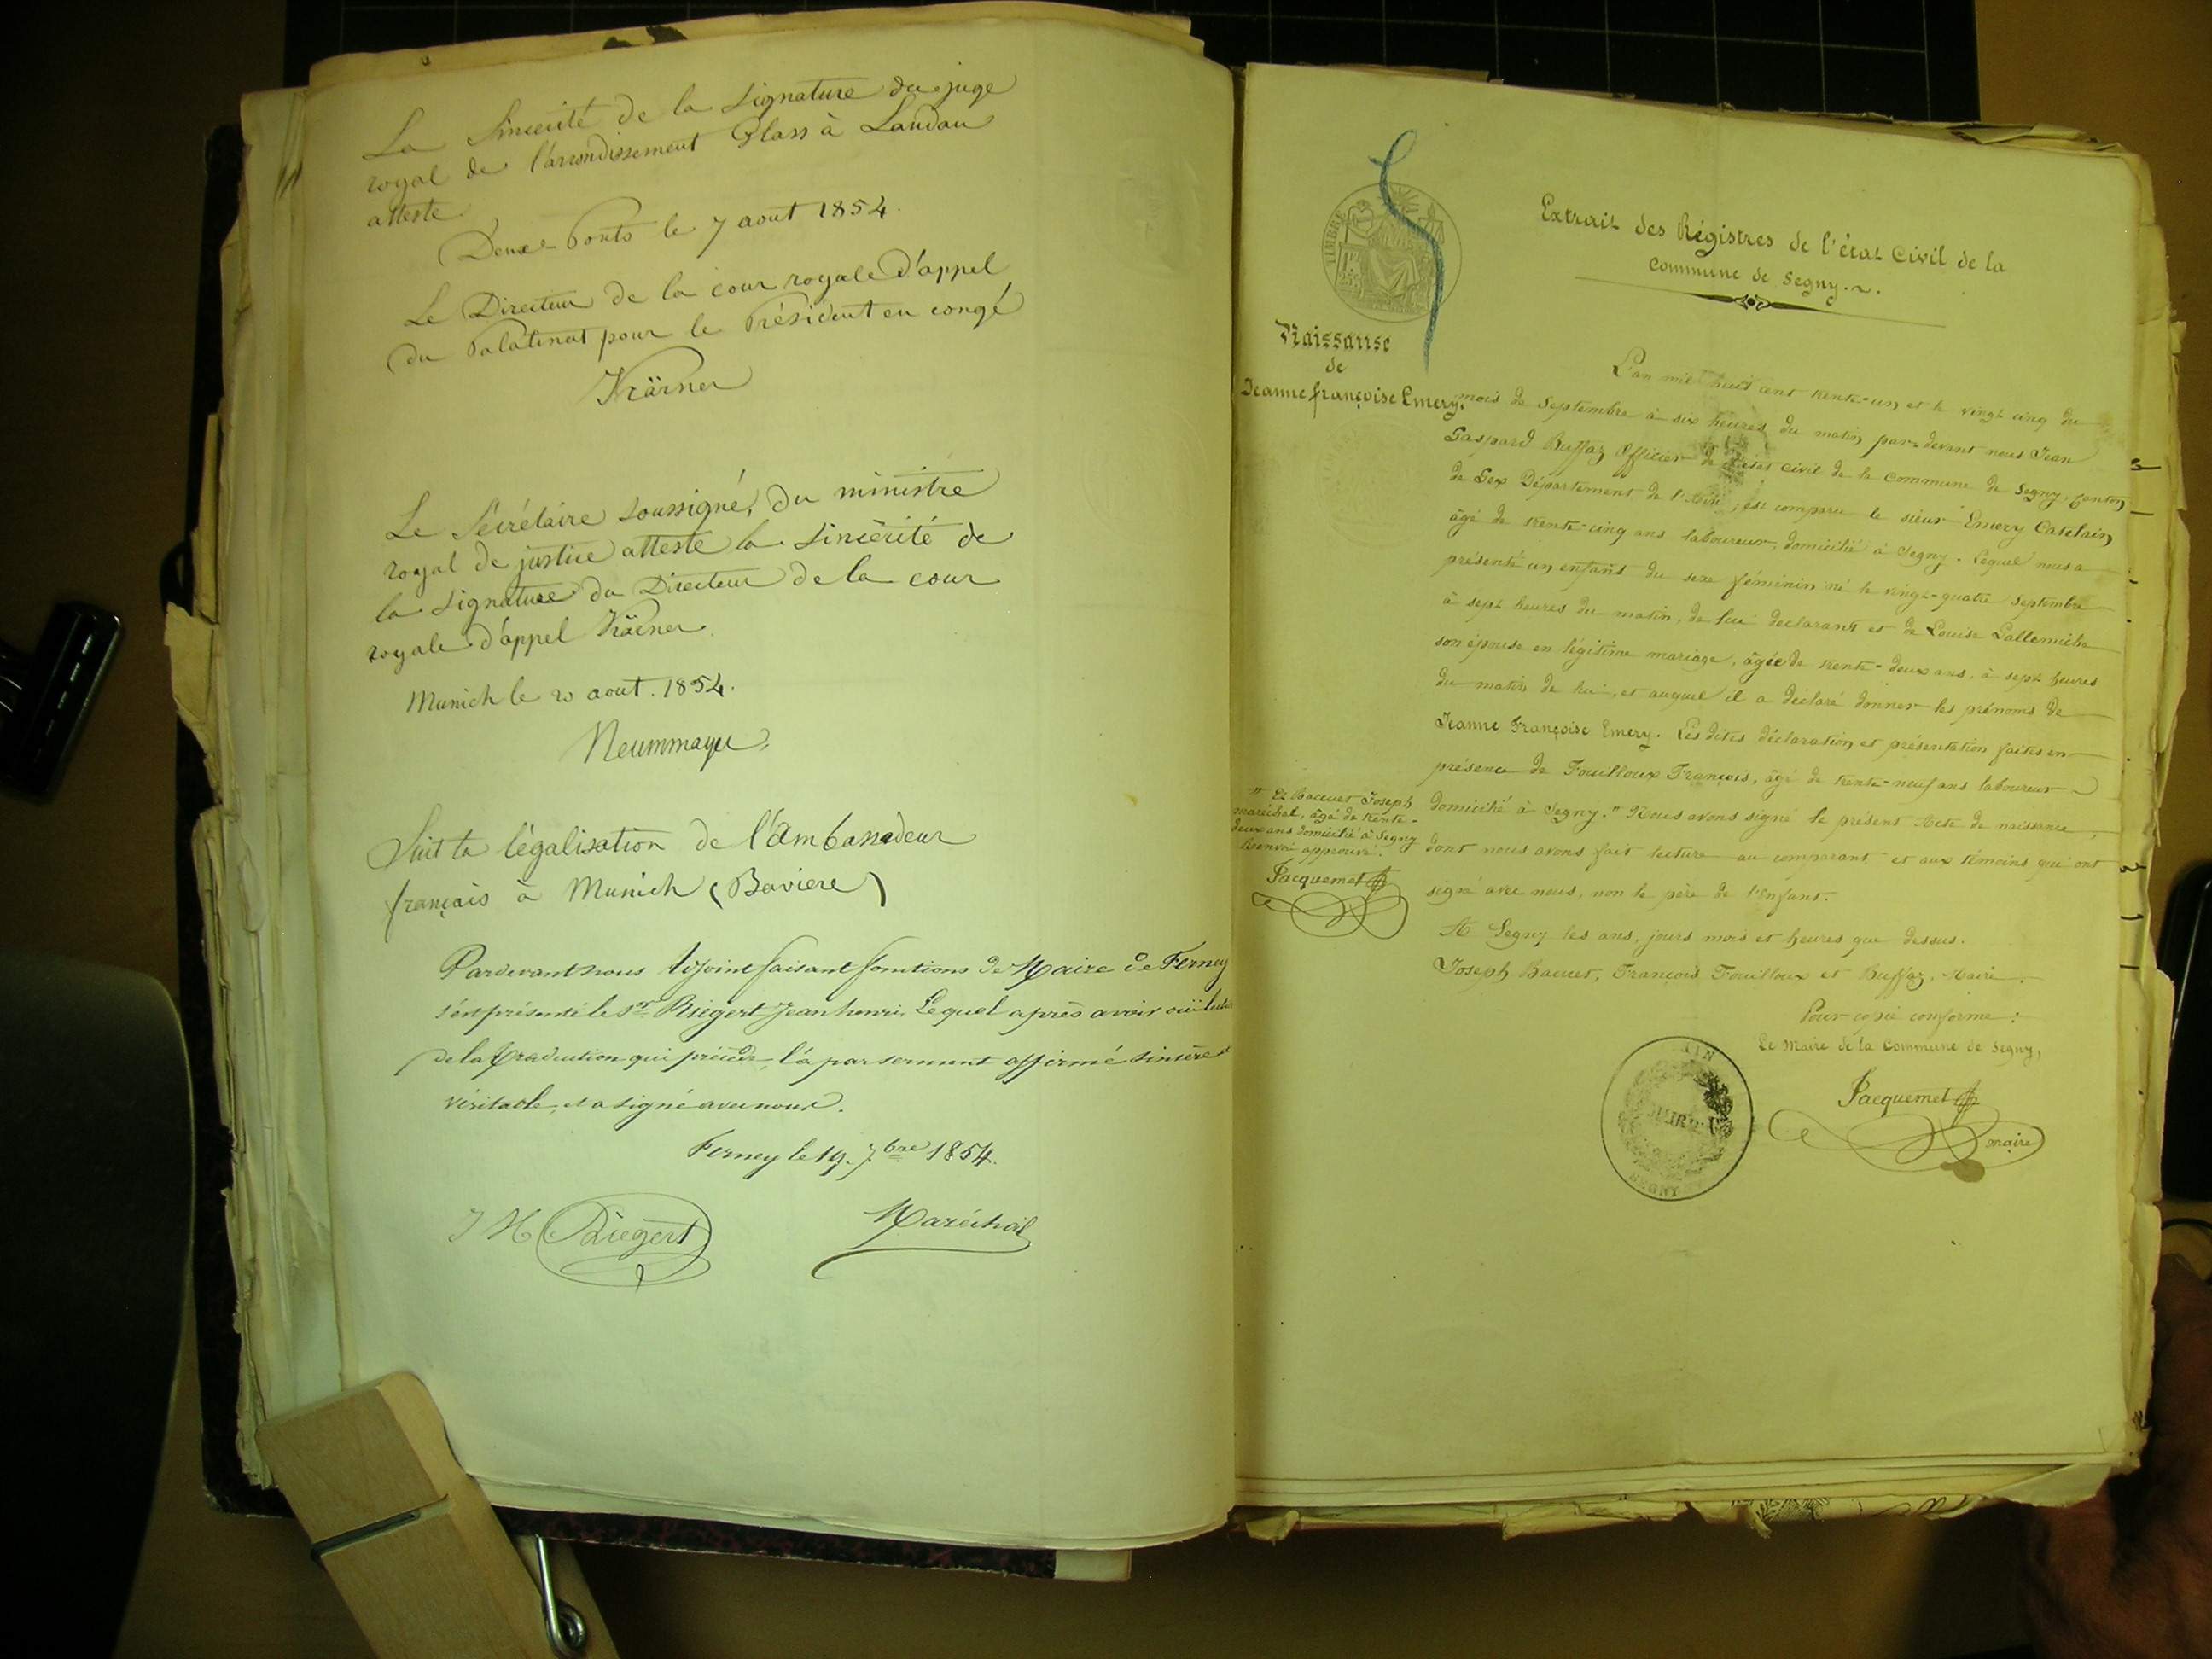 La Sincerité de la signature du juge
royal de l'arrondissement Glass à Landau
atteste
Deux-Ponts le 7 aout 1854.
Le Directeur de la cour royale d'appel
du Palatinat pour le Président en congé
Krärner
Le Sécrétaire soussigné, du ministre
royal de justice atteste la sincérité de
la signature du Directeur de la cour
royale d'appel Krärner
Munich le 20 aout. 1854.
Neummayer
Suit la légalisation de l'Ambassadeur
français à Munich (Baviere)
Pardevant nous Adjoint faisant fonctions de Maire de Ferney
s'est présenté le Sr Riegert Jean henri, Lequel après avoir ouï lecture
de la traduction qui précède, l'a par serment affirmé sincère et
véritable, et a signé avec nous.
Ferney le 19. 7bre 1854.
J H Riegert
Maréchal
TIMBRE
Extrait des Régistres de l'état Civil de la
Commune de Segny.
Naissanse
de
Jeanne françoise Emery.
L'an mil huit cent trente-un et le vingt cinq du
mois de Septembre à six heures du matin par-devant nous Jean
Gaspard Buffaz Officier de l'état civil de la Commune de Segny, Canton
de Gex Département de l'Ain, est comparu le sieur Emery Catelain
âgé de trente-cinq ans laboureur, domicilié à Segny. Lequel nous a
présenté un enfant du sexe féminin né le vingt-quatre Septembre
à sept heures du matin, de lui déclarant et de Louise Lallemiche
son épouse en légitime mariage, âgée de trente-deux ans, à sept heures
du matin de hui, et auquel il a déclaré donner les prénoms de
Jeanne Françoise Emery. Les dites déclaration et présentation faites en
présence de Fouilloux François, âgé de trente-neuf ans laboureur
domicilié à Segny." Nous avons signé le présent Acte de naissance,
dont nous avons fait lecture au comparant et aux témoins qui ont
signé avec nous, non le père de l'enfant.
" Et Bacuet Joseph
maréchal, âgé de trente-
deux ans domicilié à Segny
Renvoi approuvé.
Jacquemet
A Segny les ans, jours mois et heures que dessus.
Joseph Bacuet, François Fouilloux et Buffaz, Maire.
Pour copie conforme:
Le Maire de la Commune de Segny,
Jacquemet
maire
MAIRIE
SEGNY